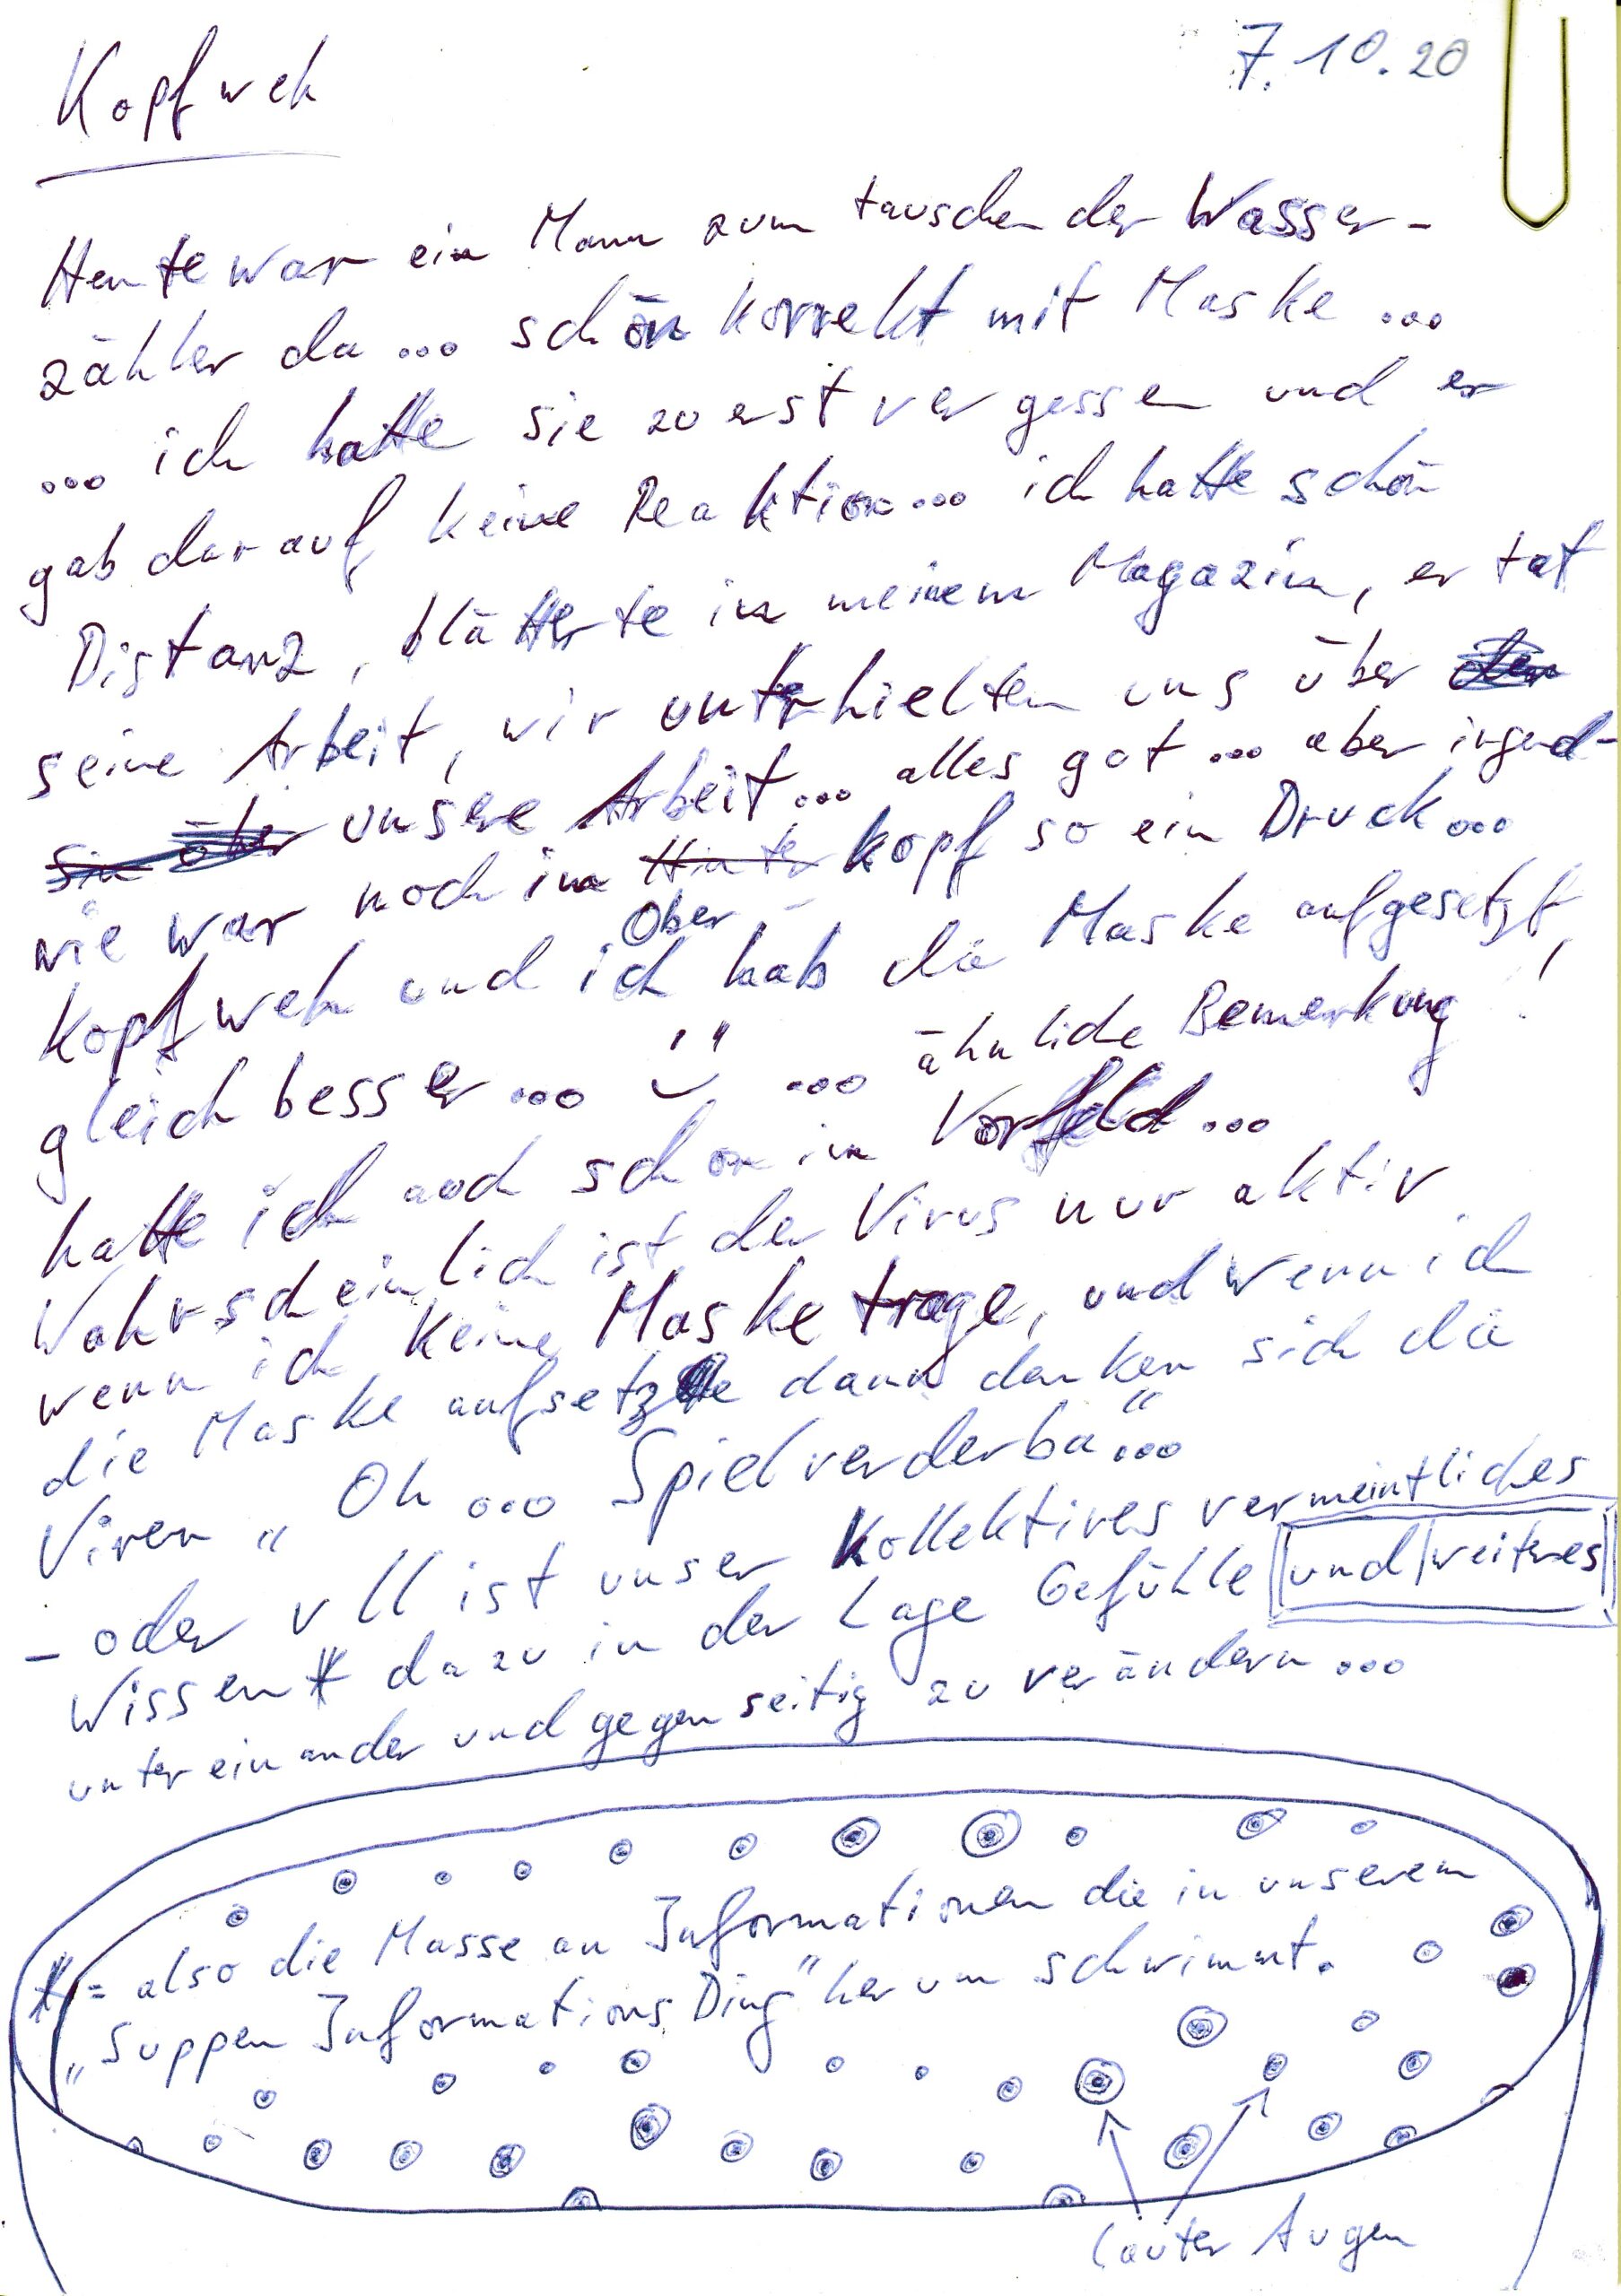 7.10.20
Kopfweh
Heute war ein Mann zum tauschen der Wasser-
zähler da... schön korrekt mit Maske...
... ich hatte sie zuerst vergessen und er
gab darauf keine Reaktion... ich hatte schön
Distanz, blätterte in meinem Magazin, er tat
seine Arbeit, wir unterhielten uns über
unsere Arbeit... alles gut... aber irgend-
wie war noch im Hinter kopf so ein Druck...
Ober
Kopfweh und ich hab die Maske aufgesetzt,
gleich besser... ... ähnliche Bemerkung!
hatte ich auch schon im Vorfeld...
Wahrscheinlich ist der Virus nur aktiv
wenn ich keine Maske trage, und wenn ich
die Maske aufsetze dann denken sich die
Viren „Oh... Spielverderba"...
- oder vll ist unser kollektives vermeintliches
Wissen* dazu in der Lage Gefühle und weiteres
untereinander und gegenseitig zu verändern...
* = also die Masse an Informationen die in unserem
„Suppen Informations Ding" herum schwimmt.
lauter Augen